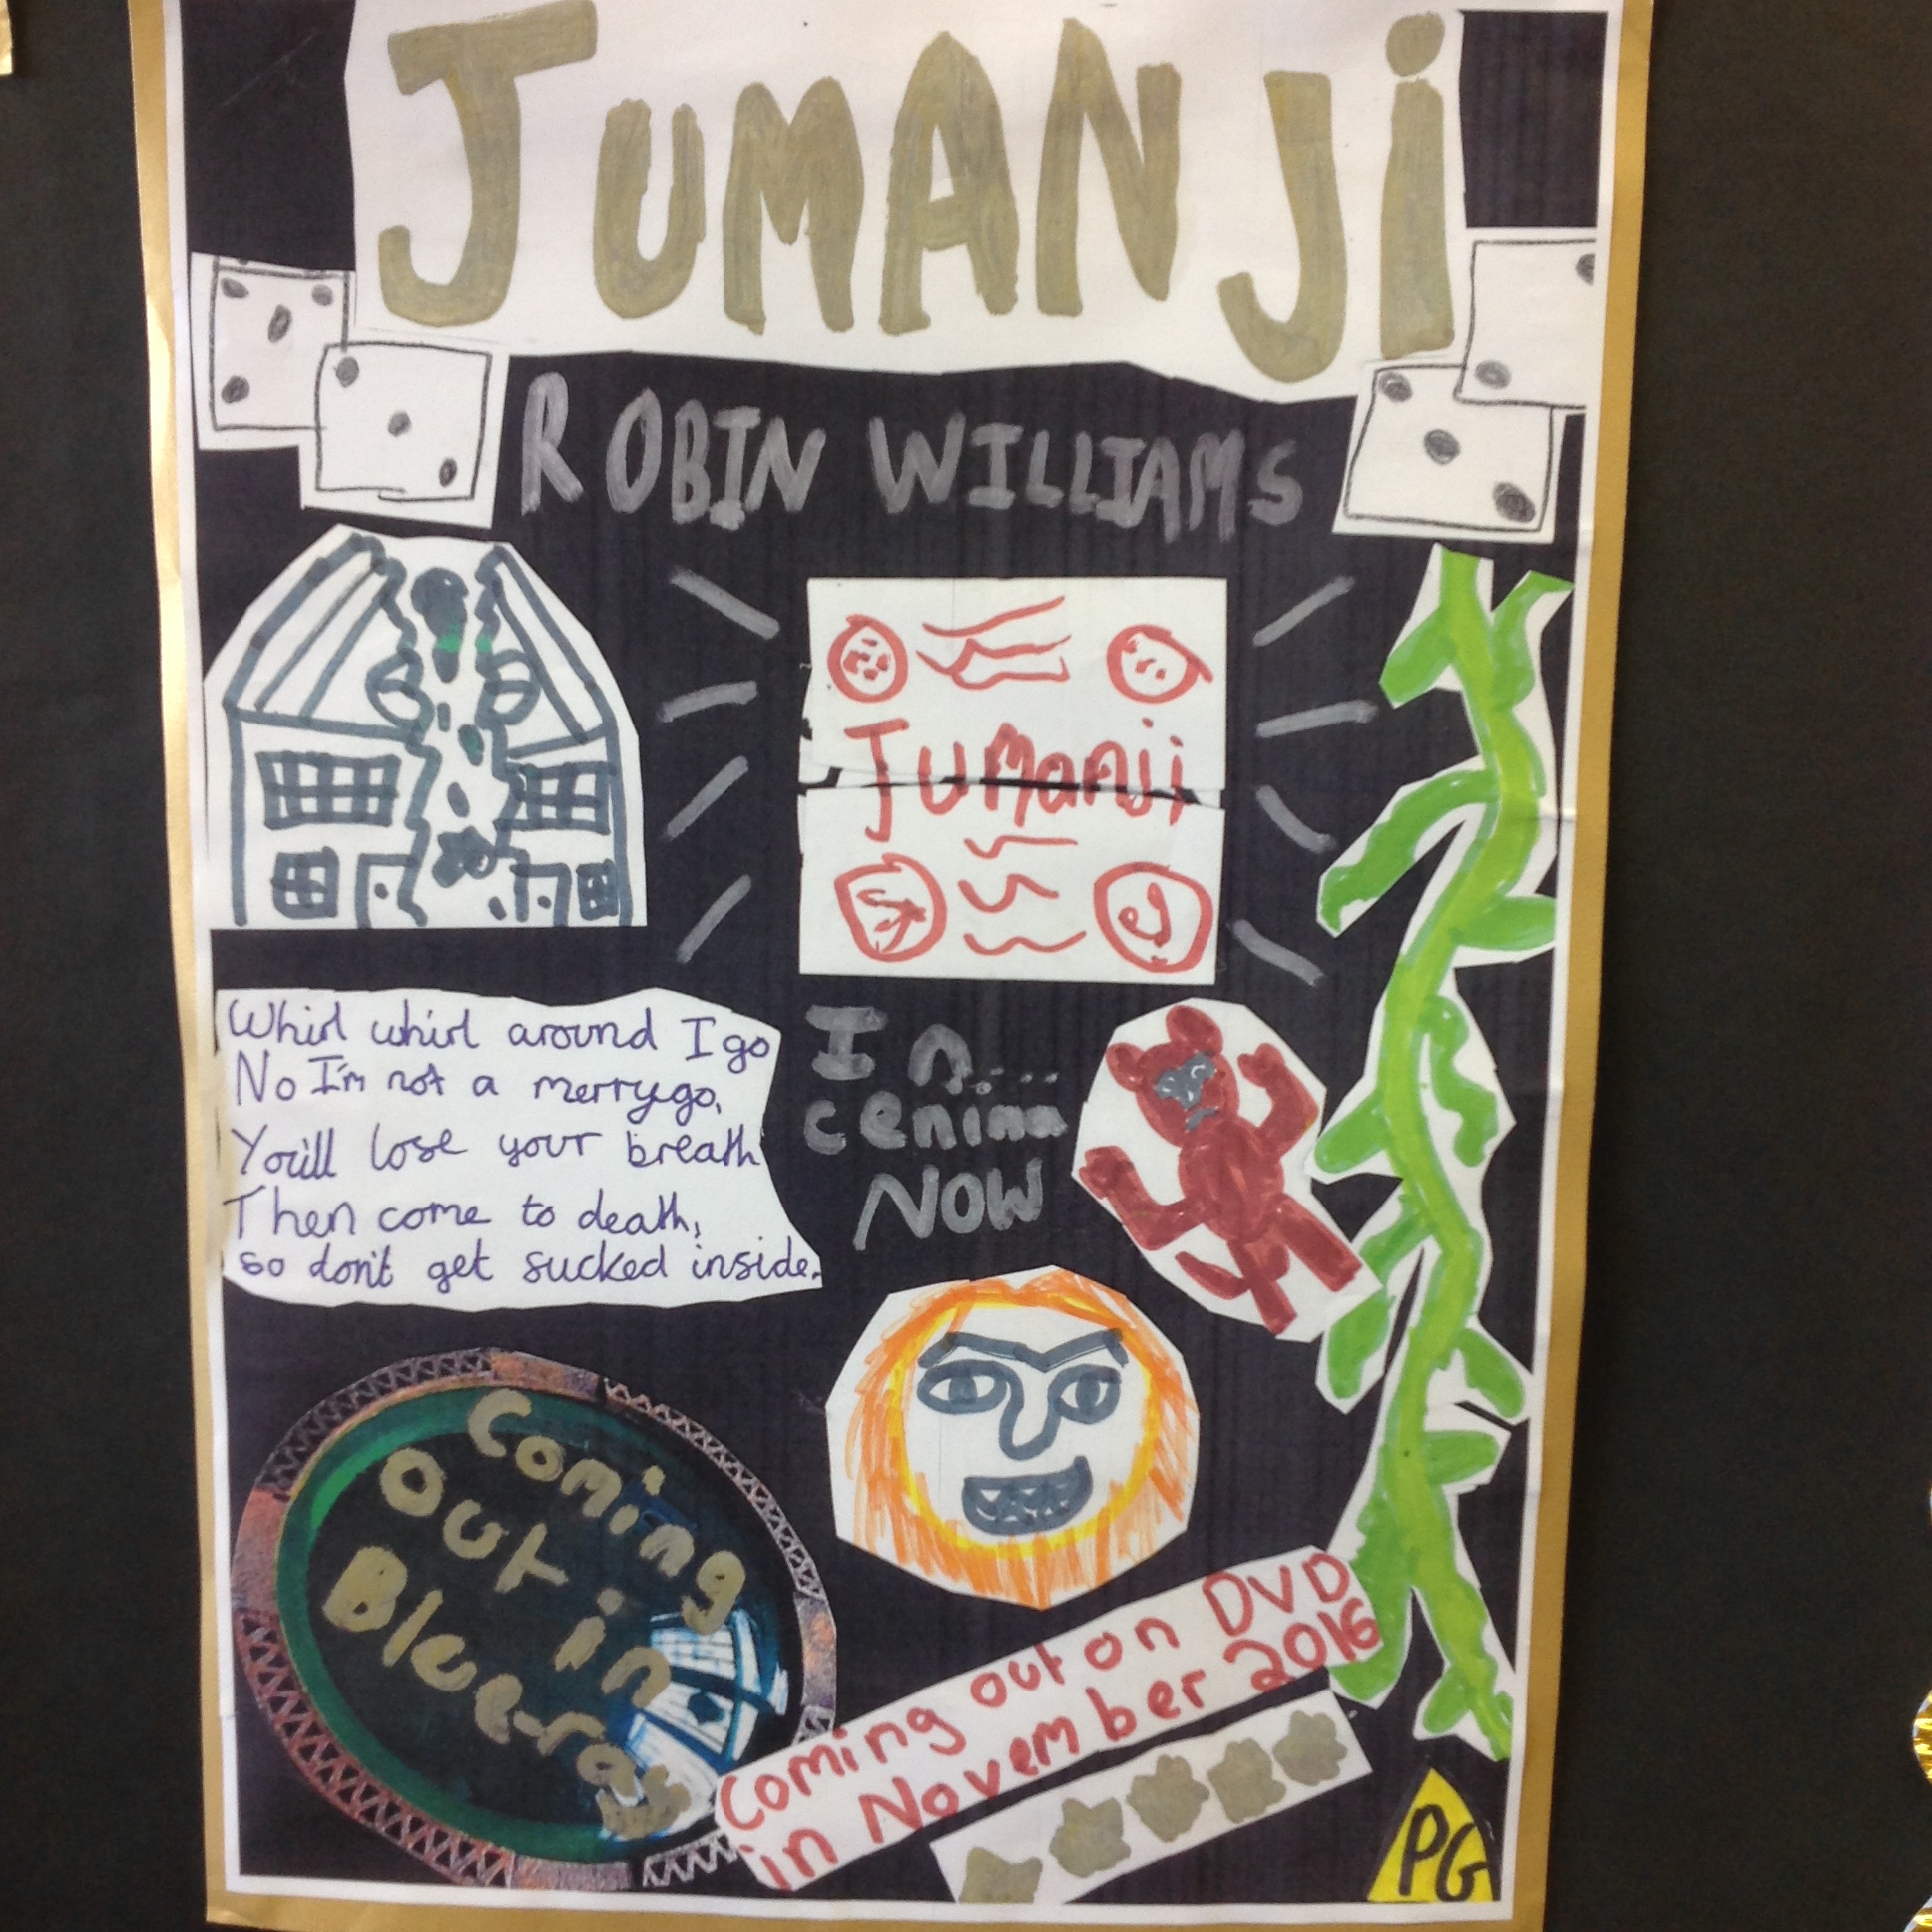 JUMANJi
ROBIN WILLIAMS
Jumanji
Whirl whirl around I go
No I'm not a merry.go,
You'll lose your breath
Then come to death,
so don't get sucked inside.
In....
cenima
NOW
Coming
out in
Blue-ray
Coming out on DVD
in November 2016
PG